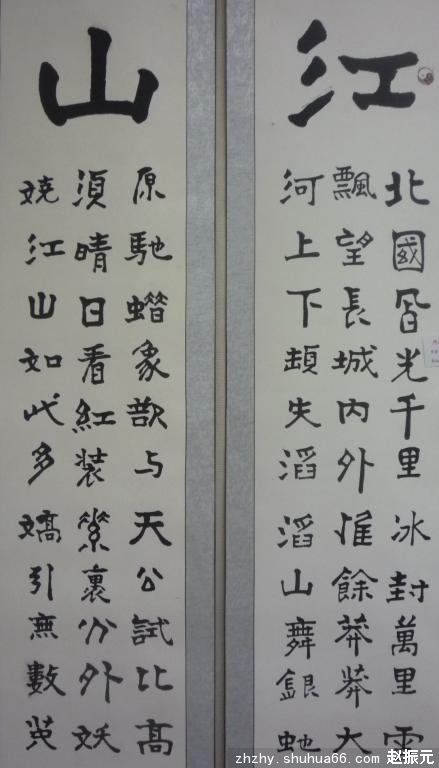 江
北國風光千里冰封萬里雪
飄望長城内外惟餘莽莽大
河上下頓失滔滔山舞銀蛇
山
原馳蜡象欲与天公試比高
須晴日看紅装素裹分外妖
嬈江山如此多嬌引無數英
zhzhy.shuhua66.com 赵振元